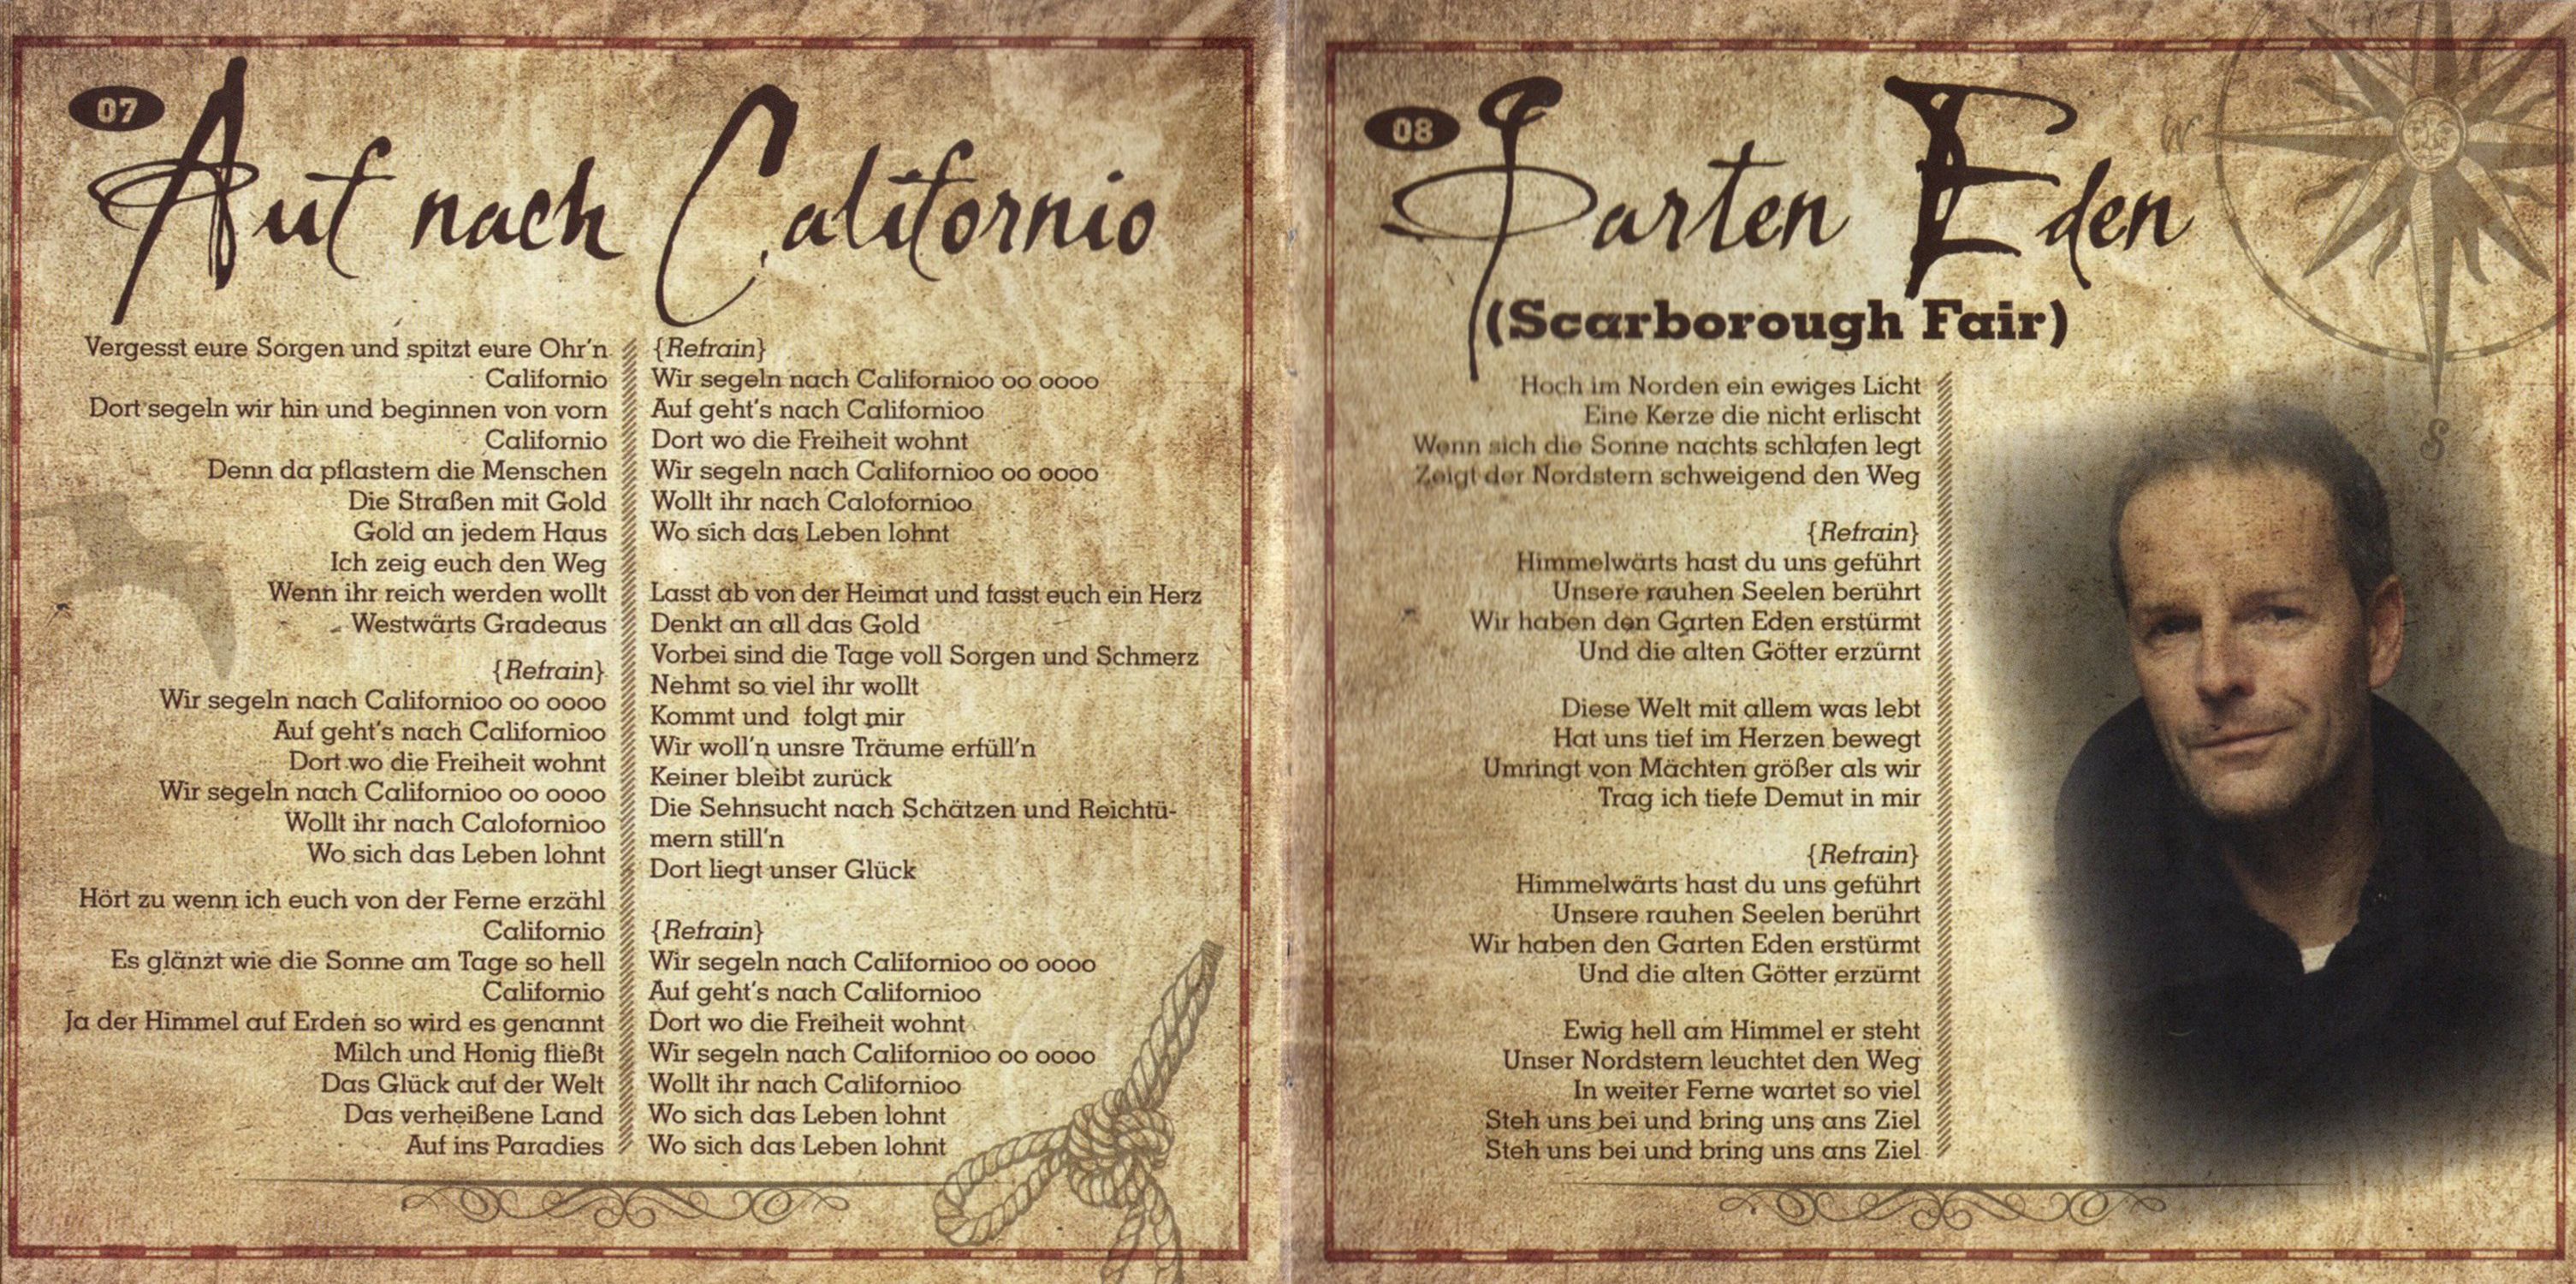 07
Auf nach Californio
Vergesst eure Sorgen und spitzt eure Ohr'n
Californio
Dort segeln wir hin und beginnen von vorn
Californio
Denn da pflastern die Menschen
Die Straßen mit Gold
Gold an jedem Haus
Ich zeig euch den Weg
Wenn ihr reich werden wollt
Westwärts Gradeaus
{Refrain}
Wir segeln nach Californioo oo oooo
Auf geht's nach Californioo
Dort wo die Freiheit wohnt
Wir segeln nach Californioo oo oooo
Wollt ihr nach Calofornioo
Wo sich das Leben lohnt
Hört zu wenn ich euch von der Ferne erzähl
Californio
Es glänzt wie die Sonne am Tage so hell
Californio
Ja der Himmel auf Erden so wird es genannt
Milch und Honig fließt
Das Glück auf der Welt
Das verheißene Land
Auf ins Paradies
{Refrain}
Wir segeln nach Californioo oo oooo
Auf geht's nach Californioo
Dort wo die Freiheit wohnt
Wir segeln nach Californioo oo oooo
Wollt ihr nach Calofornioo
Wo sich das Leben lohnt
Lasst ab von der Heimat und fasst euch ein Herz
Denkt an all das Gold
Vorbei sind die Tage voll Sorgen und Schmerz
Nehmt so viel ihr wollt
Kommt und folgt mir
Wir woll'n unsre Träume erfüll'n
Keiner bleibt zurück
Die Sehnsucht nach Schätzen und Reichtü-
mern still'n
Dort liegt unser Glück
{Refrain}
Wir segeln nach Californioo oo oooo
Auf geht's nach Californioo
Dort wo die Freiheit wohnt
Wir segeln nach Californioo oo oooo
Wollt ihr nach Californioo
Wo sich das Leben lohnt
Wo sich das Leben lohnt
08
Garten Eden
(Scarborough Fair)
Hoch im Norden ein ewiges Licht
Eine Kerze die nicht erlischt
Wenn sich die Sonne nachts schlafen legt
Zeigt der Nordstern schweigend den Weg
{Refrain}
Himmelwärts hast du uns geführt
Unsere rauhen Seelen berührt
Wir haben den Garten Eden erstürmt
Und die alten Götter erzürnt
Diese Welt mit allem was lebt
Hat uns tief im Herzen bewegt
Umringt von Mächten größer als wir
Trag ich tiefe Demut in mir
{Refrain}
Himmelwärts hast du uns geführt
Unsere rauhen Seelen berührt
Wir haben den Garten Eden erstürmt
Und die alten Götter erzürnt
Ewig hell am Himmel er steht
Unser Nordstern leuchtet den Weg
In weiter Ferne wartet so viel
Steh uns bei und bring uns ans Ziel
Steh uns bei und bring uns ans Ziel
W
S